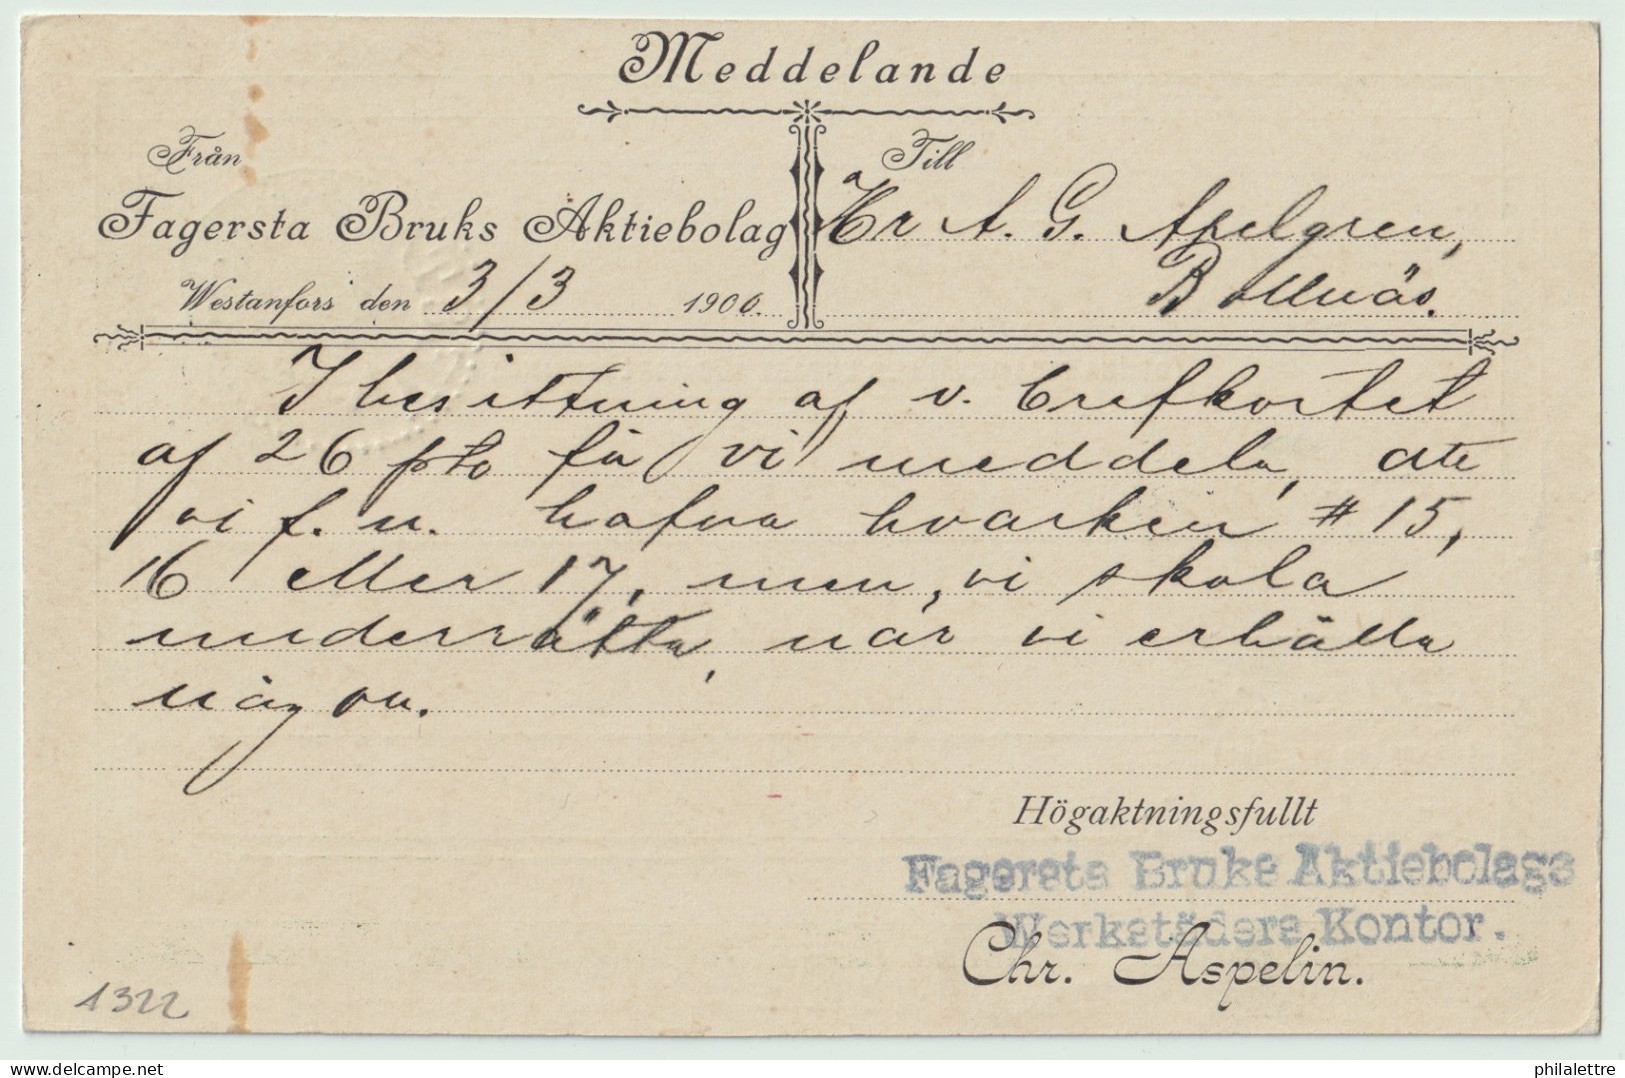 Meddelande
Från
Till
Fagersta Bruks Aktiebolag
Hr A. G. Apelgren,
Westanfors den 3/3 1900.
Bollnäs.
I besittning af v. brefkortet
af 26 pto få vi meddela, att
vi f. n. hafva hvarken # 15,
16 eller 17, men, vi skola
underrätta, när vi erhålla
någon.
Högaktningsfullt
Fagersta Bruks Aktiebolags
Werkstäders Kontor.
Chr. Aspelin.
1322
philalettre.com
philalettre